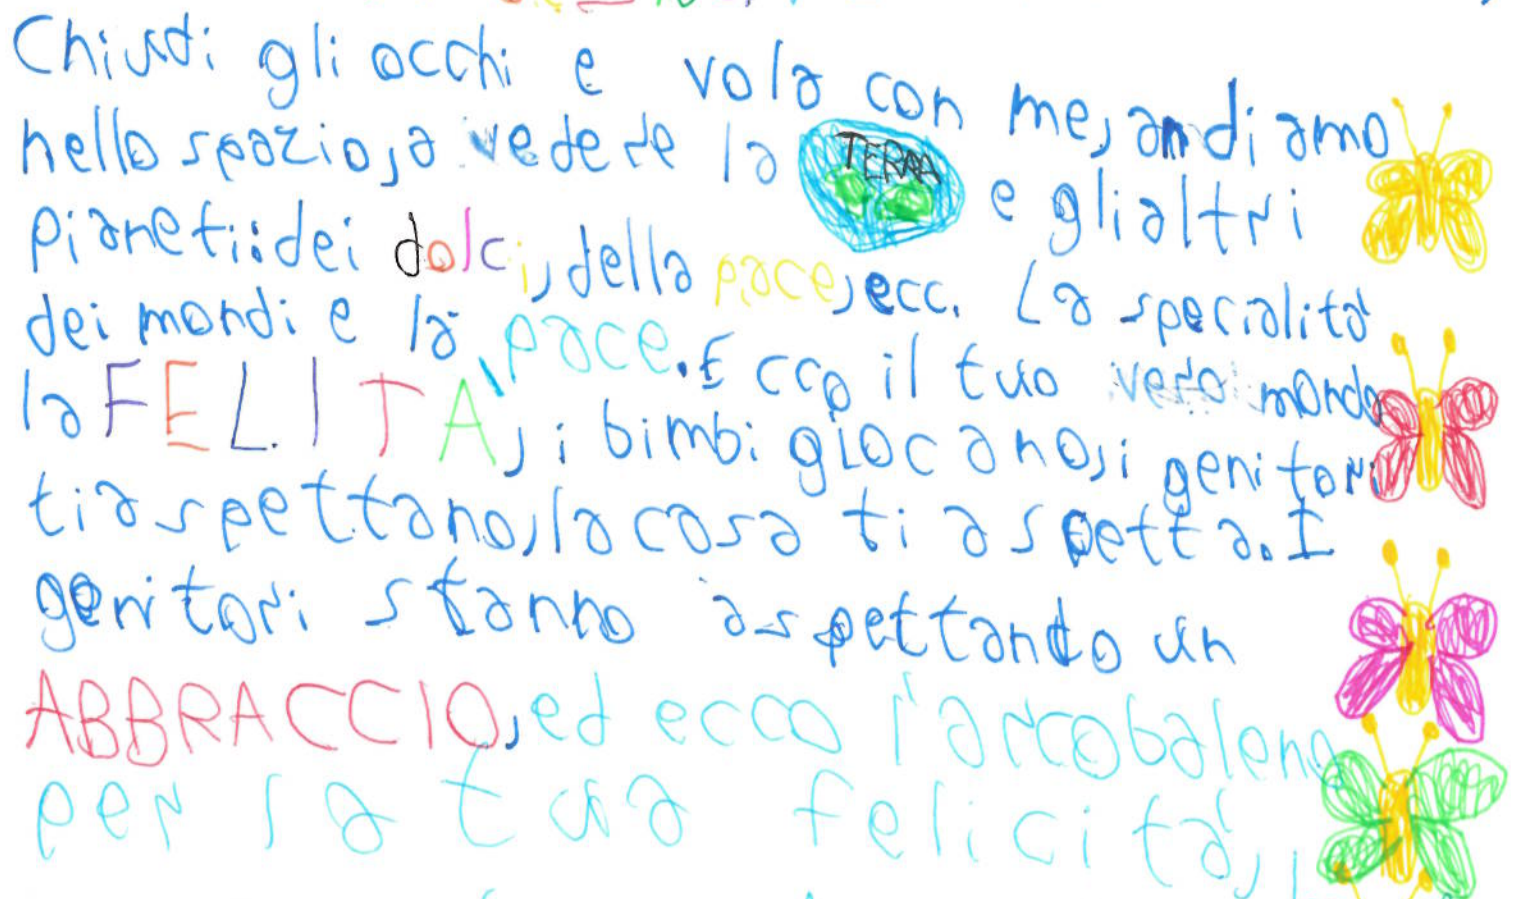 Chiudi gli occhi e vola con me, andiamo
nello spazio, a vedere la TERRA e gli altri
pianeti: dei dolci, della pace, ecc. La specialità
dei mondi e la pace. Ecco il tuo vero mondo
la FELITA', i bimbi giocano, i genitori
ti aspettano, la cosa ti aspetta. I
genitori stanno aspettando un
ABBRACCIO, ed ecco l'arcobaleno
per la tua felicità,